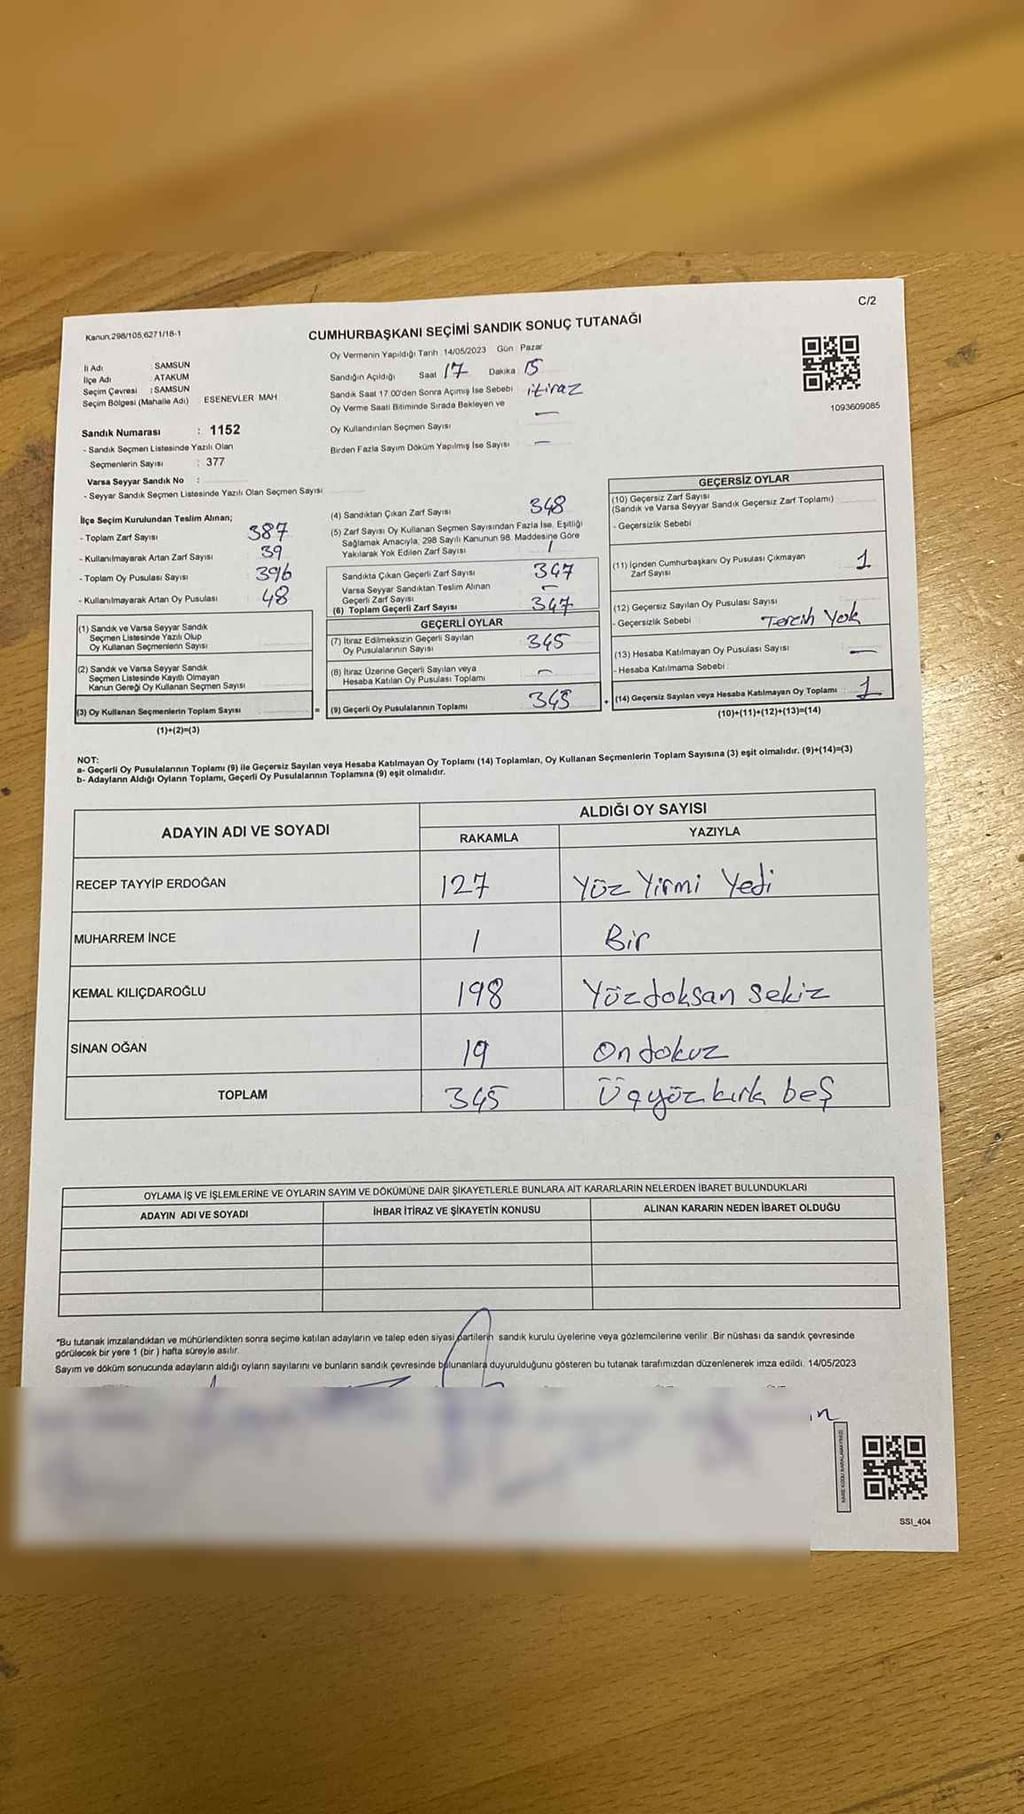 C/2
Kanun.298/105,6271/18-1
CUMHURBAŞKANI SEÇİMİ SANDIK SONUÇ TUTANAĞI
İl Adı SAMSUN
İlçe Adı ATAKUM
Seçim Çevresi : SAMSUN
Seçim Bölgesi (Mahalle Adı) ESENEVLER MAH
Sandık Numarası : 1152
- Sandık Seçmen Listesinde Yazılı Olan
Seçmenlerin Sayısı : 377
Varsa Seyyar Sandık No :
- Seyyar Sandık Seçmen Listesinde Yazılı Olan Seçmen Sayısı
Oy Vermenin Yapıldığı Tarih 14/05/2023 Gün Pazar
Sandığın Açıldığı Saat 17 Dakika 15
Sandık Saat 17.00'den Sonra Açımış İse Sebebi itiraz
Oy Verme Saati Bitiminde Sırada Bekleyen ve —
Oy Kullandırılan Seçmen Sayısı
Birden Fazla Sayım Döküm Yapılmış İse Sayısı —
1093609085
İlçe Seçim Kurulundan Teslim Alınan;
- Toplam Zarf Sayısı 387
- Kullanılmayarak Artan Zarf Sayısı 39
- Toplam Oy Pusulası Sayısı 396
- Kullanılmayarak Artan Oy Pusulası 48
(1) Sandık ve Varsa Seyyar Sandık
Seçmen Listesinde Yazılı Olup
Oy Kullanan Seçmenlerin Sayısı
(2) Sandık ve Varsa Seyyar Sandık
Seçmen Listesinde Kayıtlı Olmayan
Kanun Gereği Oy Kullanan Seçmen Sayısı
(3) Oy Kullanan Seçmenlerin Toplam Sayısı =
(1)+(2)=(3)
(4) Sandıktan Çıkan Zarf Sayısı 348
(5) Zarf Sayısı Oy Kullanan Seçmen Sayısından Fazla İse, Eşitliği
Sağlamak Amacıyla, 298 Sayılı Kanunun 98. Maddesine Göre
Yakılarak Yok Edilen Zarf Sayısı 1
Sandıkta Çıkan Geçerli Zarf Sayısı 347
Varsa Seyyar Sandıktan Teslim Alınan
Geçerli Zarf Sayısı —
(6) Toplam Geçerli Zarf Sayısı 347
GEÇERLİ OYLAR
(7) İtiraz Edilmeksizin Geçerli Sayılan
Oy Pusulalarının Sayısı 345
(8) İtiraz Üzerine Geçerli Sayılan veya
Hesaba Katılan Oy Pusulası Toplamı —
(9) Geçerli Oy Pusulalarının Toplamı 345 +
GEÇERSİZ OYLAR
(10) Geçersiz Zarf Sayısı
(Sandık ve Varsa Seyyar Sandık Geçersiz Zarf Toplamı)
- Geçersizlik Sebebi
(11) İçinden Cumhurbaşkanı Oy Pusulası Çıkmayan
Zarf Sayısı 1
(12) Geçersiz Sayılan Oy Pusulası Sayısı
- Geçersizlik Sebebi Tercih Yok
(13) Hesaba Katılmayan Oy Pusulası Sayısı —
- Hesaba Katılmama Sebebi
(14) Geçersiz Sayılan veya Hesaba Katılmayan Oy Toplamı 1
(10)+(11)+(12)+(13)=(14)
NOT:
a- Geçerli Oy Pusulalarının Toplamı (9) ile Geçersiz Sayılan veya Hesaba Katılmayan Oy Toplamı (14) Toplamları, Oy Kullanan Seçmenlerin Toplam Sayısına (3) eşit olmalıdır. (9)+(14)=(3)
b- Adayların Aldığı Oyların Toplamı, Geçerli Oy Pusulalarının Toplamına (9) eşit olmalıdır.
ADAYIN ADI VE SOYADI ALDIĞI OY SAYISI
RAKAMLA YAZIYLA
RECEP TAYYİP ERDOĞAN 127 Yüz Yirmi Yedi
MUHARREM İNCE 1 Bir
KEMAL KILIÇDAROĞLU 198 Yüzdoksan sekiz
SİNAN OĞAN 19 On dokuz
TOPLAM 345 Üçyüzkırk beş
OYLAMA İŞ VE İŞLEMLERİNE VE OYLARIN SAYIM VE DÖKÜMÜNE DAİR ŞİKAYETLERLE BUNLARA AİT KARARLARIN NELERDEN İBARET BULUNDUKLARI
ADAYIN ADI VE SOYADI İHBAR İTİRAZ VE ŞİKAYETİN KONUSU ALINAN KARARIN NEDEN İBARET OLDUĞU
*Bu tutanak imzalandıktan ve mühürlendikten sonra seçime katılan adayların ve talep eden siyasi partilerin sandık kurulu üyelerine veya gözlemcilerine verilir. Bir nüshası da sandık çevresinde
görülecek bir yere 1 (bir) hafta süreyle asılır.
Sayım ve döküm sonucunda adayların aldığı oyların sayılarını ve bunların sandık çevresinde bulunanlara duyurulduğunu gösteren bu tutanak tarafımızdan düzenlenerek imza edildi. 14/05/2023
SSI_404